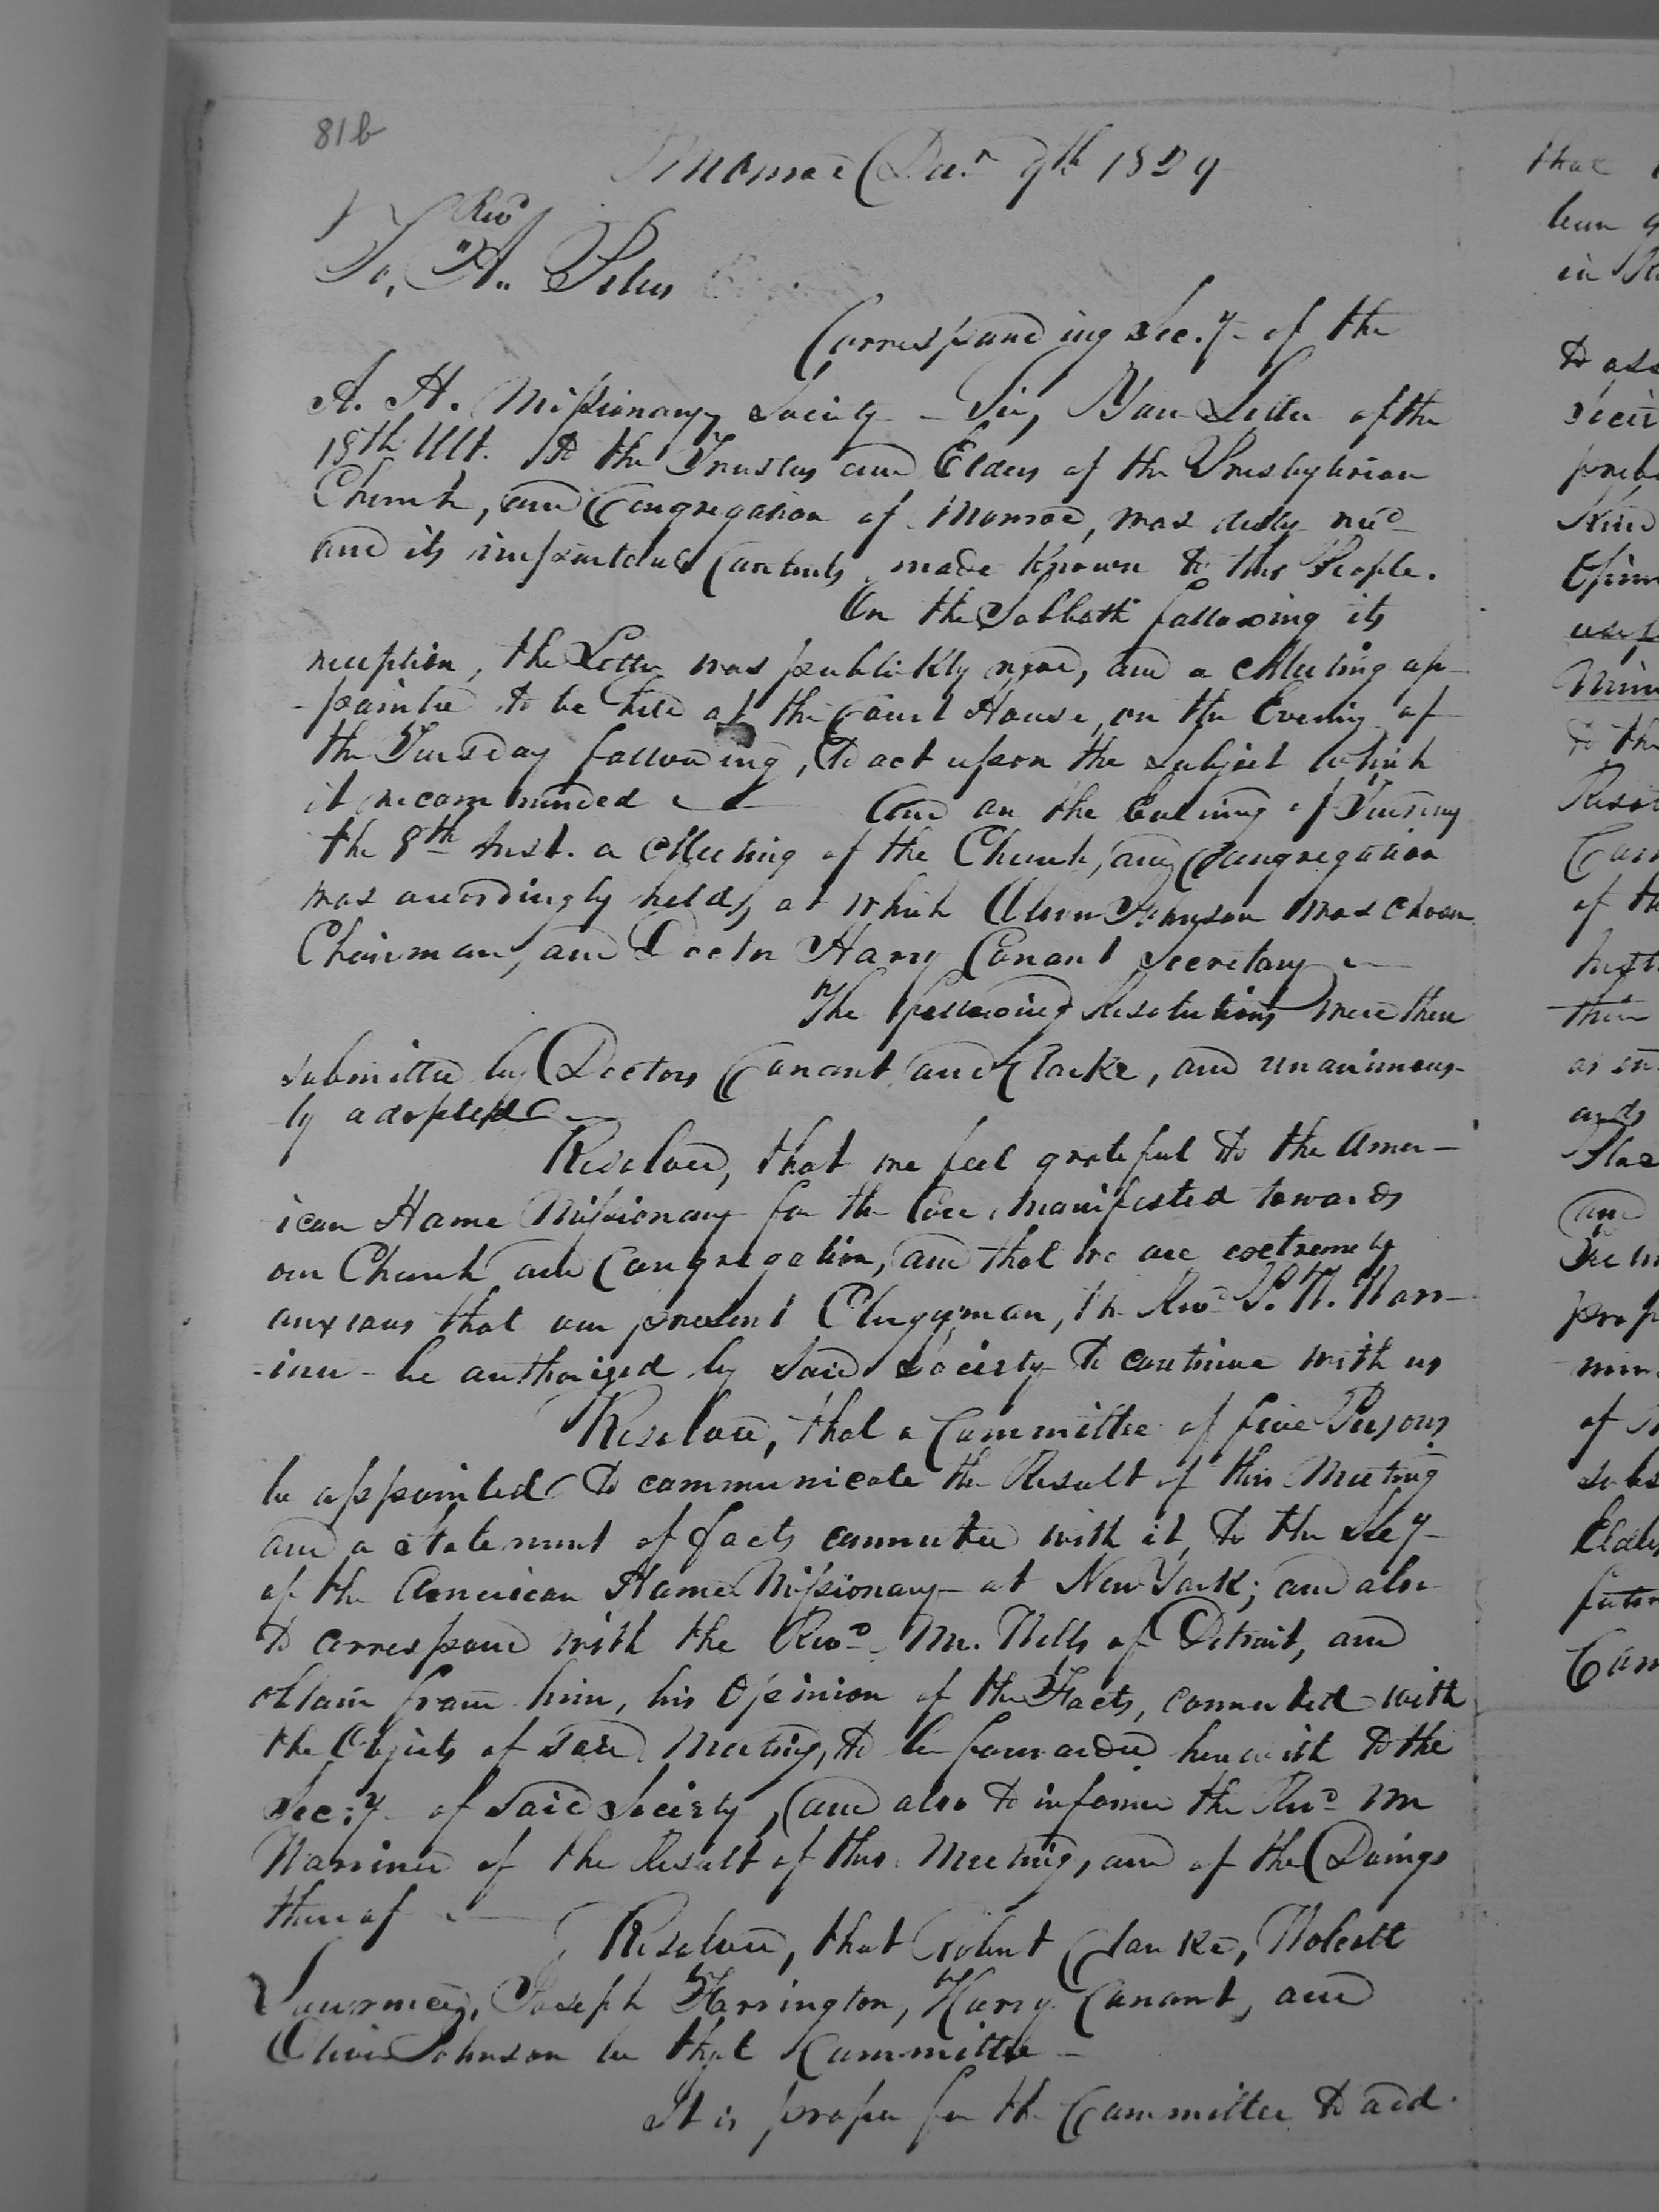 81b
Monroe Decr 9th 1829
Revd
To, "A.. Peters
Corresponding Sec.y of the
A. H. Missionary Society - Sir, Your Letter of the
18th Ult. to the Trustees and Elders of the Presbyterian
Church, and Congregation of Monroe, was duly recd
and its important Contents, made Known to this People.
On the Sabbath following its
reception, the Letter was publickly read, and a Meeting ap-
-pointed to be held at the Court House, on the Evening of
the Tuesday following, to act upon the subject which
it recommended — And on the Evening of Tuesday
the 8th Inst. a Meeting of the Church, and Congregation
was accordingly held, at which Oliver Johnson was chosen
Chairman, and Doctr Harry Conant Secretary —
The following Resolutions were then
submitted by Doctors Conant and Clarke, and unanimous-
ly adopted —
Resolved, that we feel grateful to the Amer-
ican Home Missionary for the Care manifested towards
our Church and Congregation, and that we are extremely
anxious that our present Clergyman, the Revd P. W. Warr-
-iner - be authorized by said Society to continue with us
Resolved, that a Committee of five Persons
be appointed to communicate the Result of this Meeting
and a statement of facts connected with it, to the Secy
of the American Home Missionary at New York; and also
to correspond with the Revd Mr. Wells of Detroit, and
obtain from him, his Opinion of the Facts, connected with
the Objects of said Meeting, to be forwarded herewith to the
Sec:y of said Society, and also to inform the Revd Mr
Warriner of the Result of this Meeting, and of the Doings
thereof —
Resolved, that Robert Clarke, Wolcott
Lawrence, Joseph Farrington, Harry Conant, and
Oliver Johnson be that Committee -
It is proper for the Committee to add
that
been
in
to
of
to the
of
as
and
of